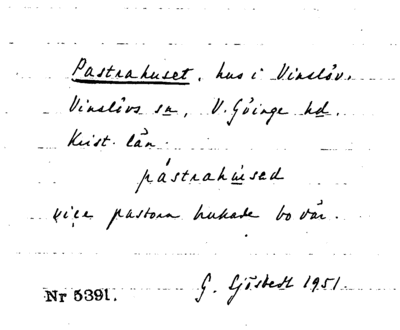 Pastrahuset, hus i Vinslöv.
Vinslövs sn, V. Göinge hd.
Krist. län
pástrahúsed
pastorn hukade bo där.
G. Sjöstedt 1951.
Nr 5391.